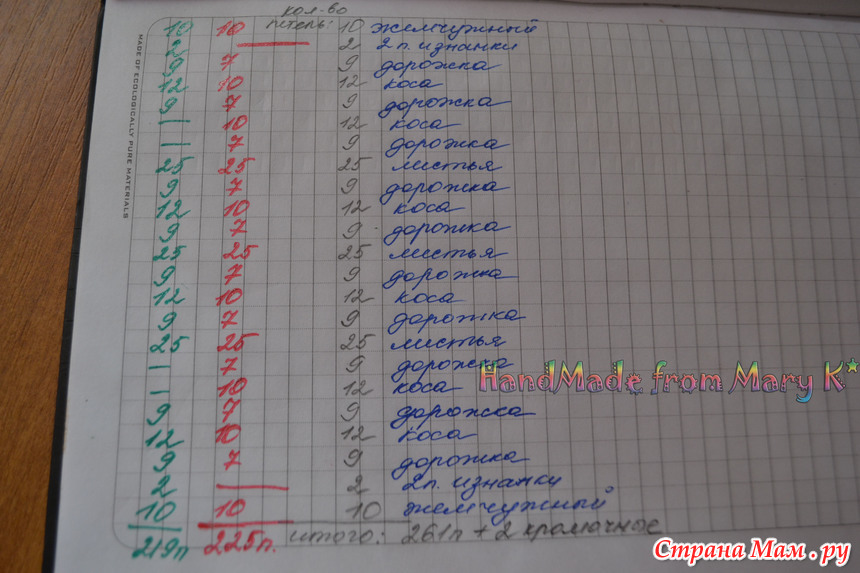 кол-во
10 10 петель: 10 жемчужный
2 — 2 2 п. изнанки
9 7 9 дорожка
12 10 12 коса
9 7 9 дорожка
| 10 12 коса
| 7 9 дорожка
25 25 25 листья
9 7 9 дорожка
12 10 12 коса
9 7 9 дорожка
25 25 25 листья
9 7 9 дорожка
12 10 12 коса
9 7 9 дорожка
25 25 25 листья
| 7 9 дорожка
| 10 12 коса
9 7 9 дорожка
12 10 12 коса
9 7 9 дорожка
2 — 2 2п. изнанки
10 10 10 жемчужный
219п 225п. итого: 261п + 2 кромочное
MADE OF ECOLOGICALLY PURE MATERIALS
HandMade from Mary K*
Страна Мам.ру